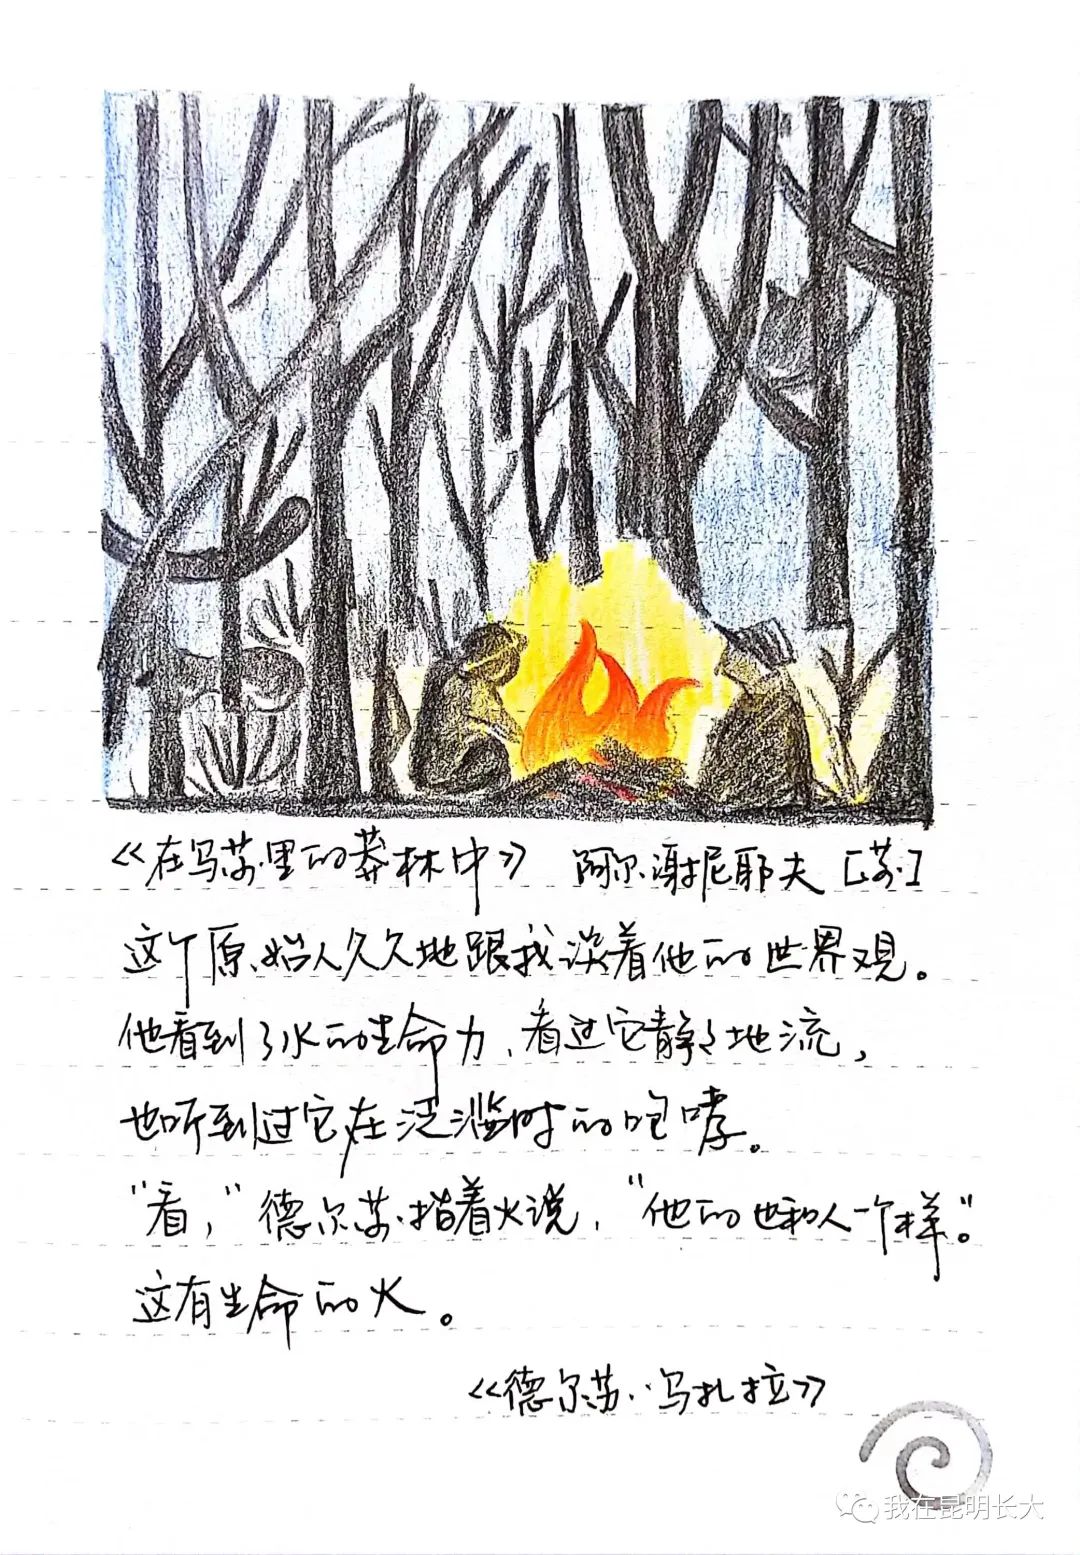 《在乌苏里的莽林中》 阿尔谢尼耶夫 [苏]
这个原始人久久地跟我谈着他的世界观。
他看到了水的生命力，看过它静静地流，
也听到过它在泛滥时的咆哮。
“看，”德尔苏指着火说，“他的也和人一个样”。
这有生命的火。
《德尔苏·乌扎拉》
我在昆明长大